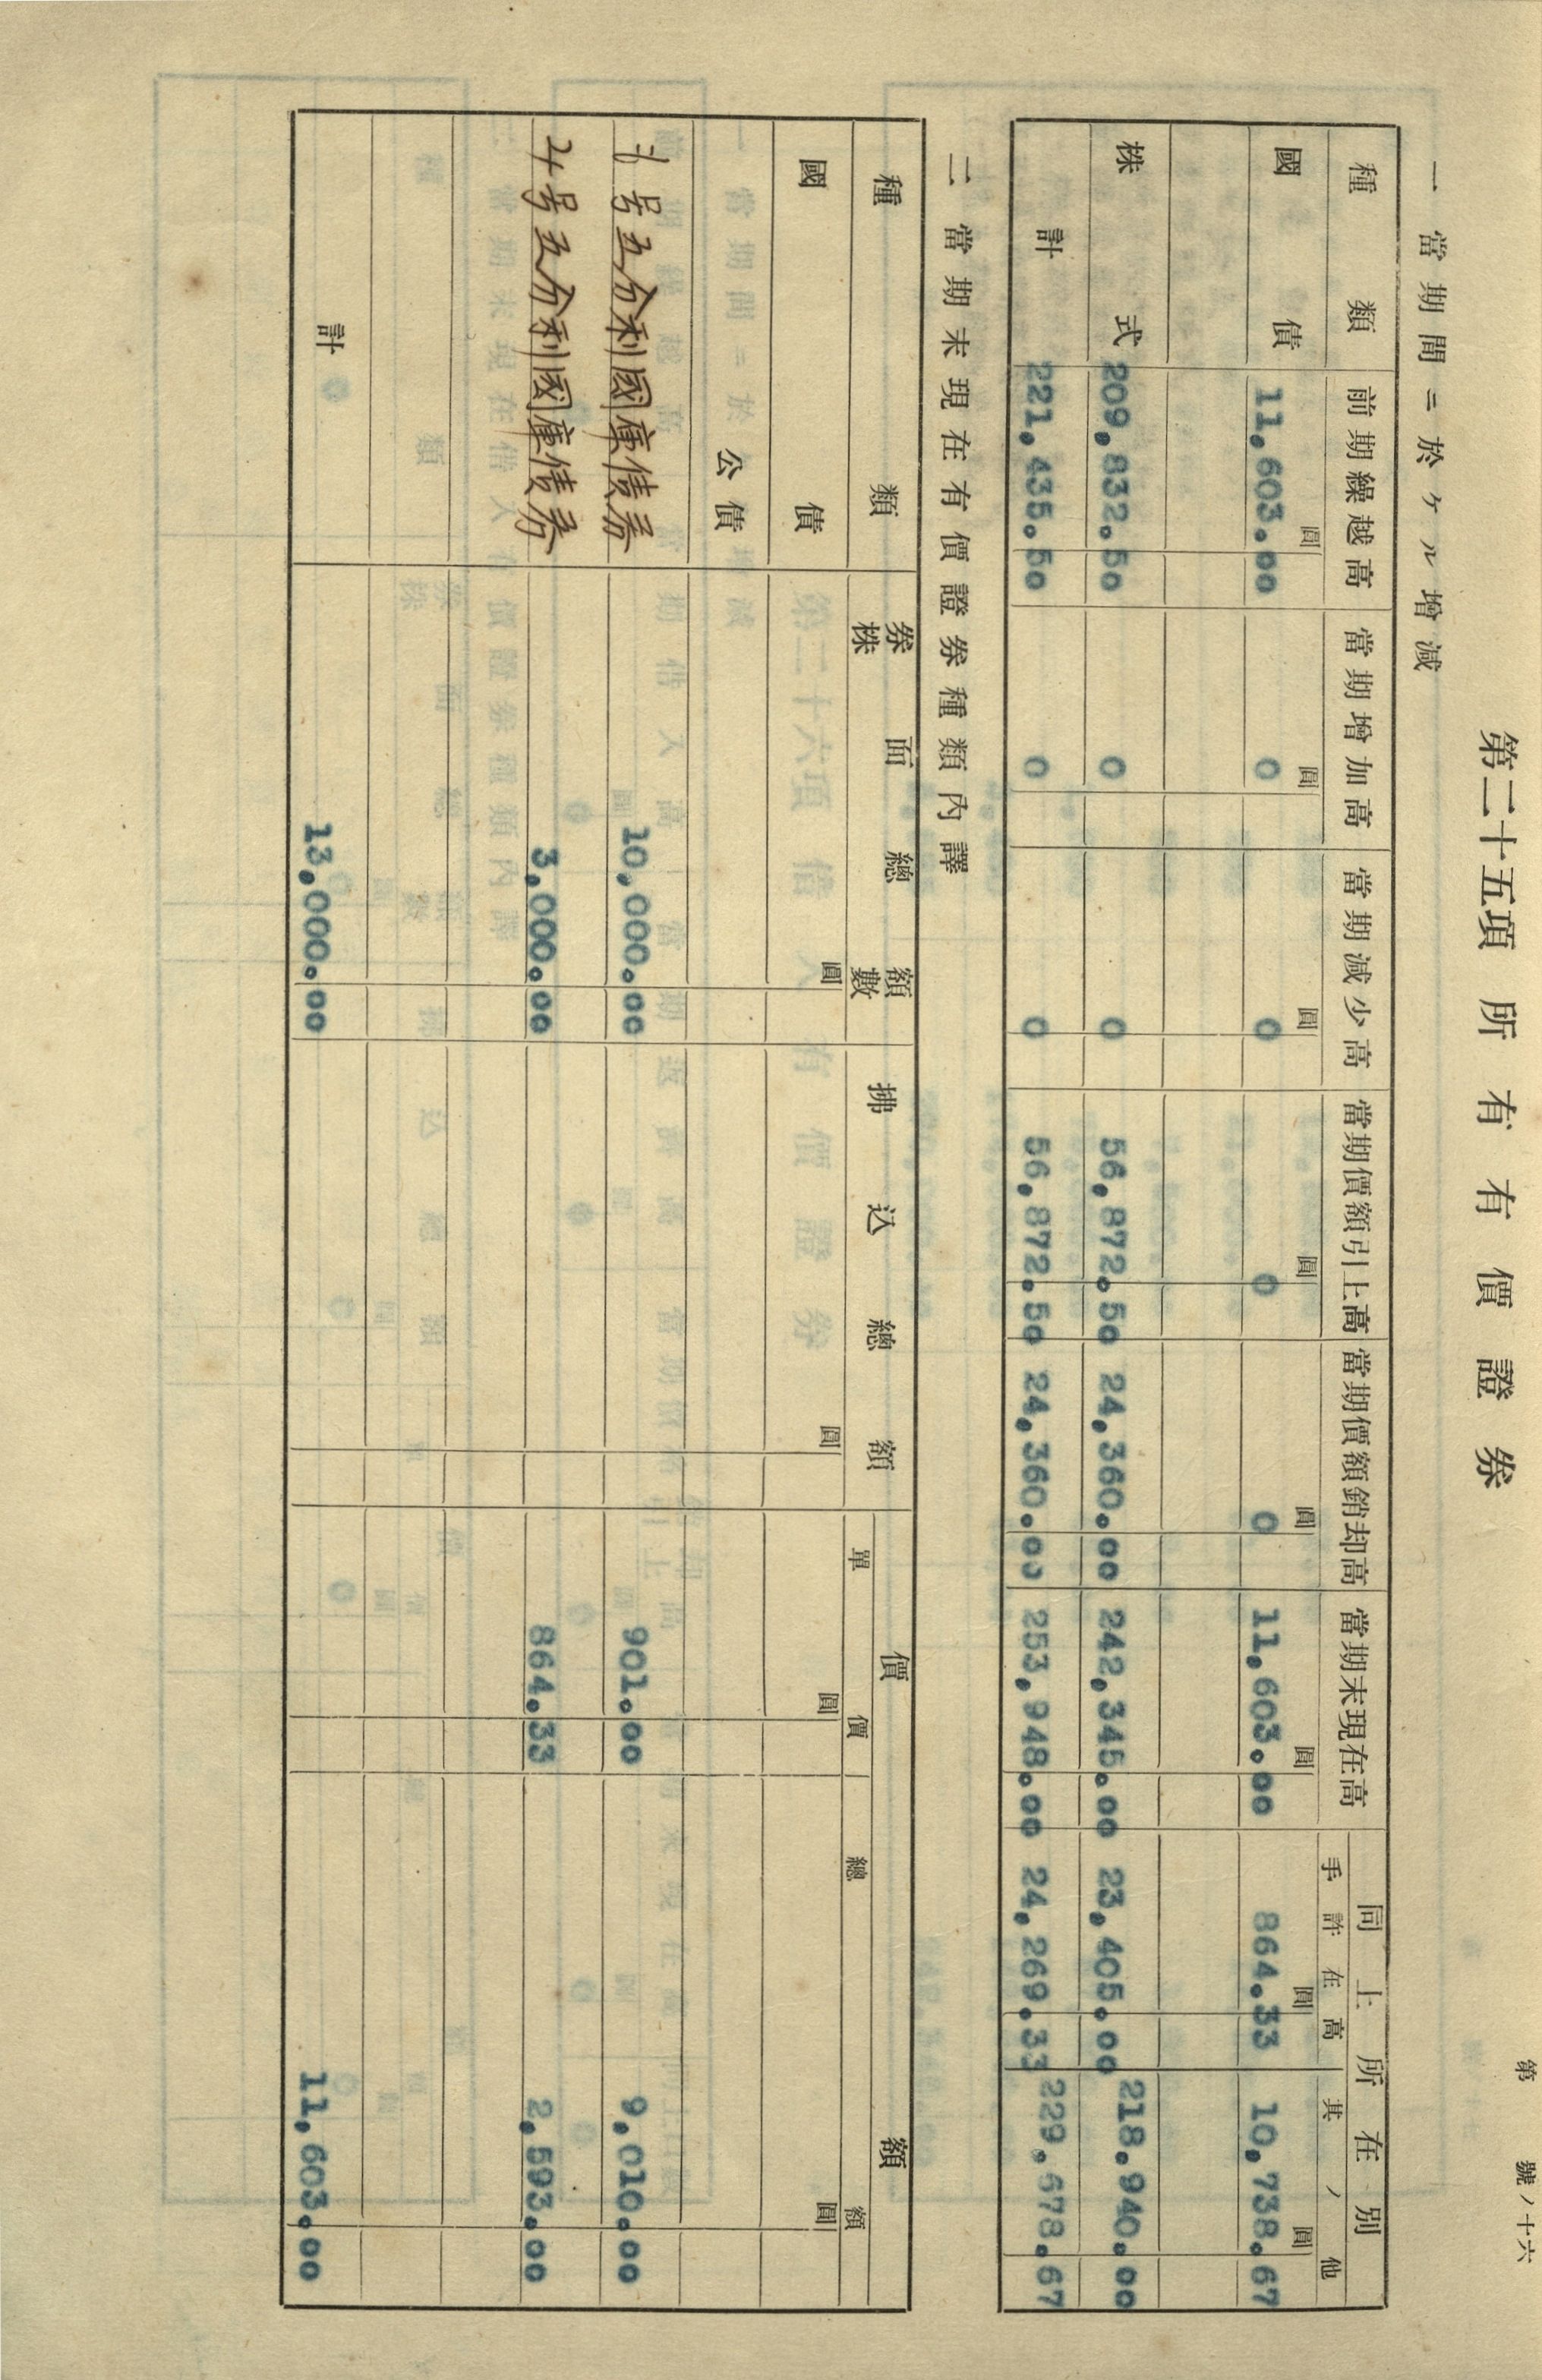 第 號ノ十六
第二十五項 所有有價證券
一 當期間ニ於ケル增減
種類 前期繰越高 當期增加高 當期減少高 當期價額引上高 當期價額銷却高 當期末現在高 同上所在別
手許在高 其ノ他
圓 圓 圓 圓 圓 圓 圓 圓
國債 11,603.00 0 0 0 0 11,603.00 864.33 10,738.67
株式 209,832.50 0 0 56,872.50 24,360.00 242,345.00 23,405.00 218.940.00
計 221,435.50 0 0 56,872.50 24,360.00 253,948.00 24,269.33 229.678.67
二 當期末現在有價證券種類內譯
種類 券面總額 拂込總額 價額
株數 單價 總額
國債 圓 圓 圓 圓
公債
号五分利國庫債券 10,000.00 901.00 9,010.00
号五分利國庫債券 3,000.00 864.33 2,593.00
計 13,000.00 11,603.00